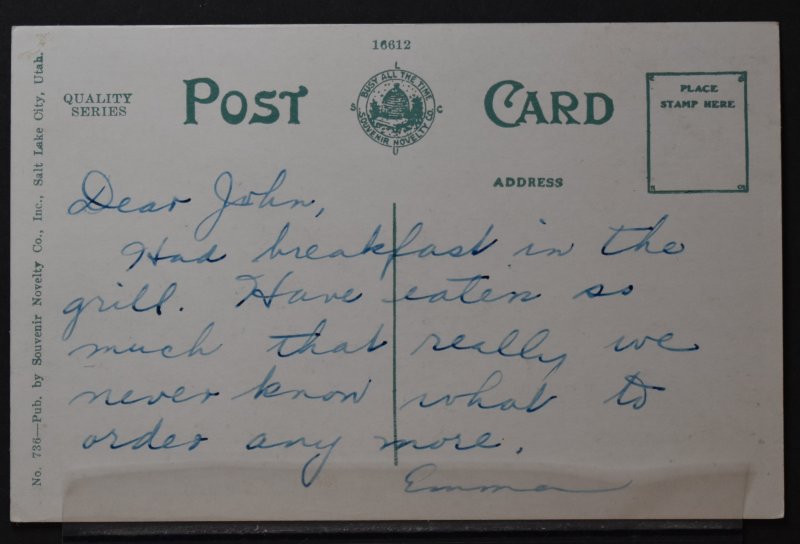 16612
QUALITY
SERIES
POST
L
BUSY ALL THE TIME
S
C
SOUVENIR NOVELTY CO.
U
CARD
PLACE
STAMP HERE
ADDRESS
No. 736—Pub. by Souvenir Novelty Co., Inc., Salt Lake City, Utah.
Dear John,
Had breakfast in the
grill. Have eaten so
much that really we
never know what to
order any more.
Emma